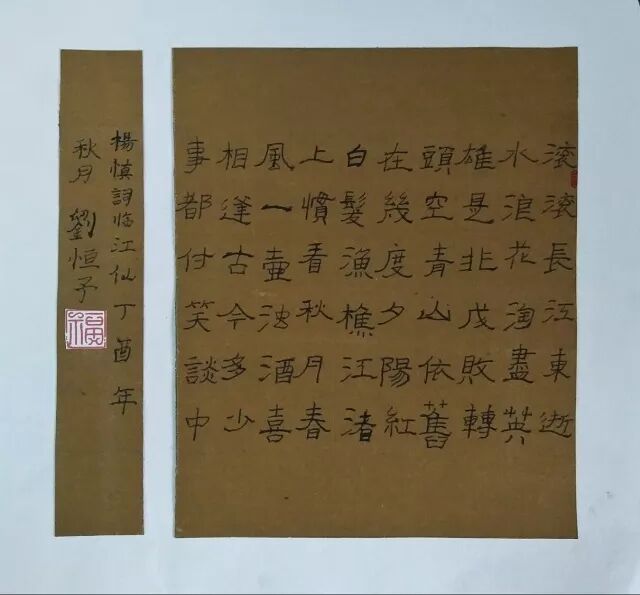 滚滚長江東逝
水浪花淘盡英
雄是非成敗轉
頭空青山依舊
在幾度夕陽紅
白髮漁樵江渚
上慣看秋月春
風一壺浊酒喜
相逢古今多少
事都付笑談中
楊慎詞临江仙丁酉年
秋月 劉恒予
福